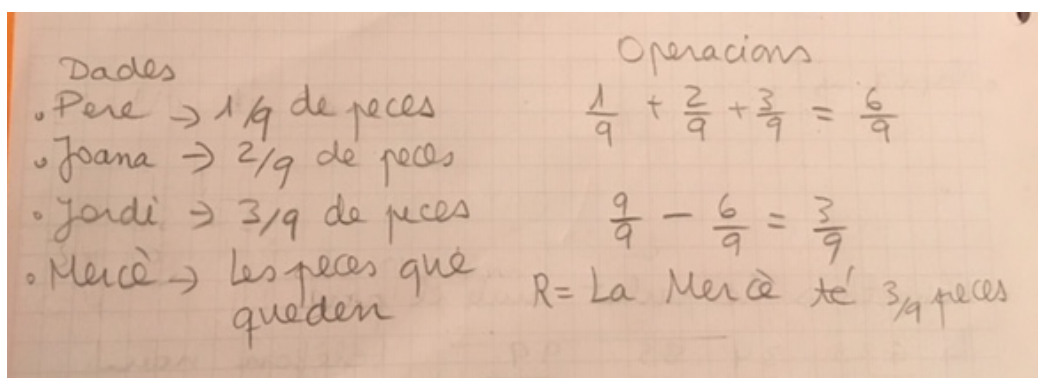 Dades
. Pere → 1/9 de peces
. Joana → 2/9 de peces
. Jordi → 3/9 de peces
. Mercè → Les peces que
queden
Operacions
1/9 + 2/9 + 3/9 = 6/9
9/9 - 6/9 = 3/9
R= La Mercè té 3/9 peces